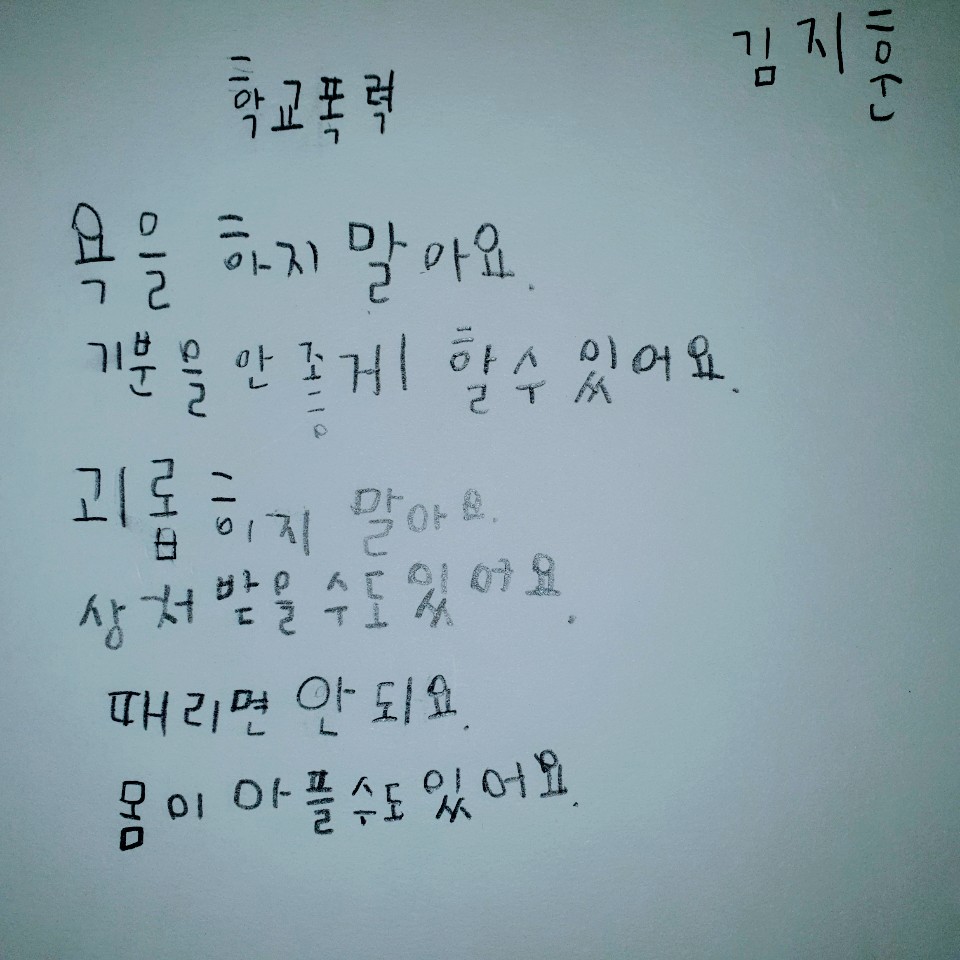 김지훈
학교폭력
욕을 하지 말아요.
기분을 안 좋게 할 수 있어요.
괴롭히지 말아요.
상처 받을 수도 있어요.
때리면 안 되요.
몸이 아플 수도 있어요.